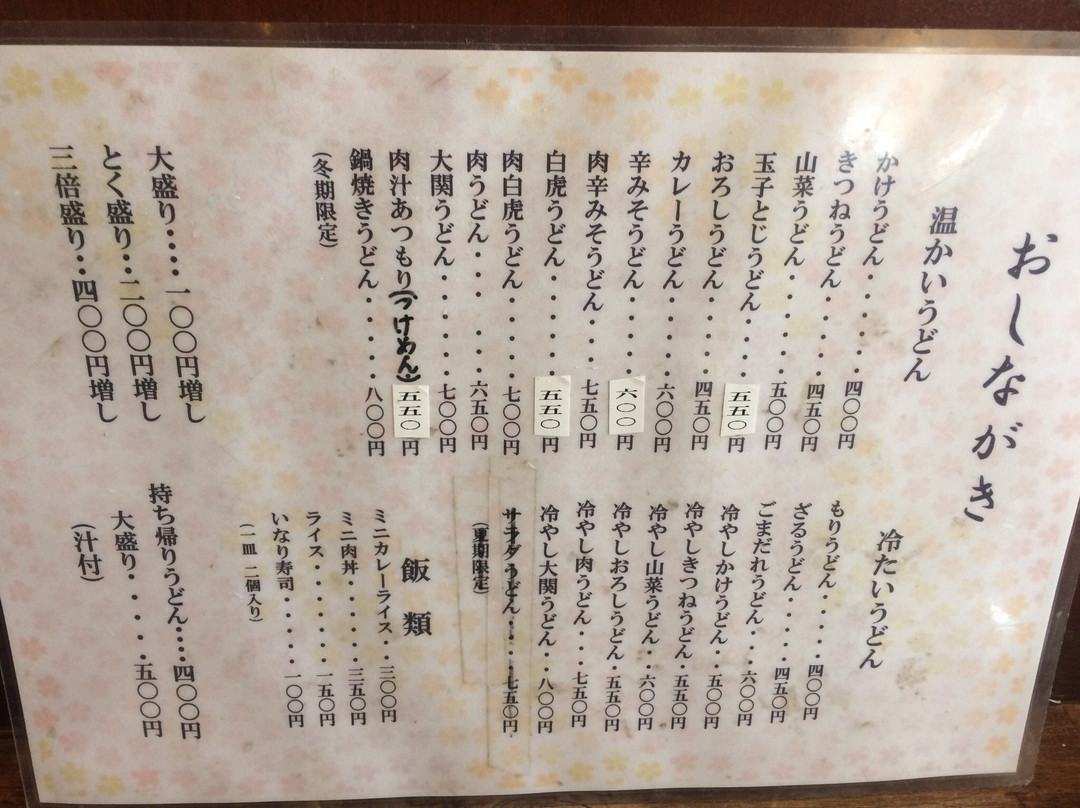 おしながき
温かいうどん
かけうどん・・・・・・四〇〇円
きつねうどん・・・・・四五〇円
山菜うどん・・・・・・五〇〇円
玉子とじうどん・・・・五五〇円
おろしうどん・・・・・四五〇円
カレーうどん・・・・・六〇〇円
辛みそうどん・・・・・六〇〇円
肉辛みそうどん・・・・七五〇円
白虎うどん・・・・・・五五〇円
肉白虎うどん・・・・・七〇〇円
肉うどん・・・・・・・六五〇円
大関うどん・・・・・・七〇〇円
肉汁あつもり(つけめん)五五〇円
鍋焼きうどん・・・・・八〇〇円
(冬期限定)
大盛り・・・・一〇〇円増し
とく盛り・・二〇〇円増し
三倍盛り・・四〇〇円増し
冷たいうどん
もりうどん・・・・・四〇〇円
ざるうどん・・・・・四五〇円
ごまだれうどん・・・六〇〇円
冷やしかけうどん・・五〇〇円
冷やしきつねうどん・五五〇円
冷やし山菜うどん・・六〇〇円
冷やしおろしうどん・五五〇円
冷やし肉うどん・・・七五〇円
冷やし大関うどん・・八〇〇円
サラダうどん・・・・七五〇円
(夏期限定)
飯類
ミニカレーライス・・三〇〇円
ミニ肉丼・・・・・・三五〇円
ライス・・・・・・・一五〇円
いなり寿司・・・・・一〇〇円
(一皿 二個入り)
持ち帰りうどん・・・・四〇〇円
大盛り・・・・五〇〇円
(汁付)